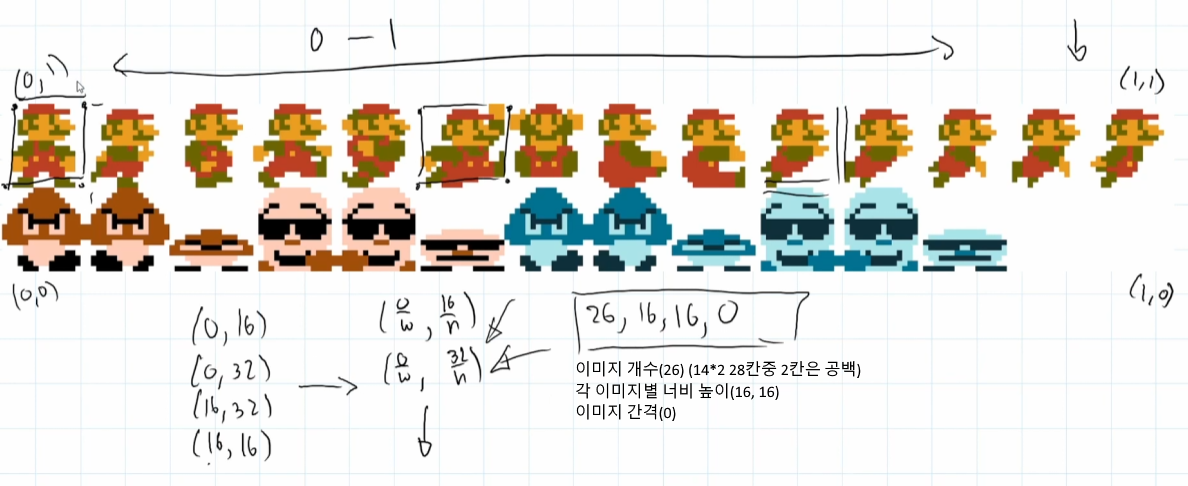 0 — 1
(0,1)
(1,1)
(0,0)
(1,0)
(0,16)
(0,32)
(16,32)
(16,16)
(0/w, 16/h)
(0/w, 32/h)
26, 16, 16, 0
이미지 개수(26) (14*2 28칸중 2칸은 공백)
각 이미지별 너비 높이(16, 16)
이미지 간격(0)